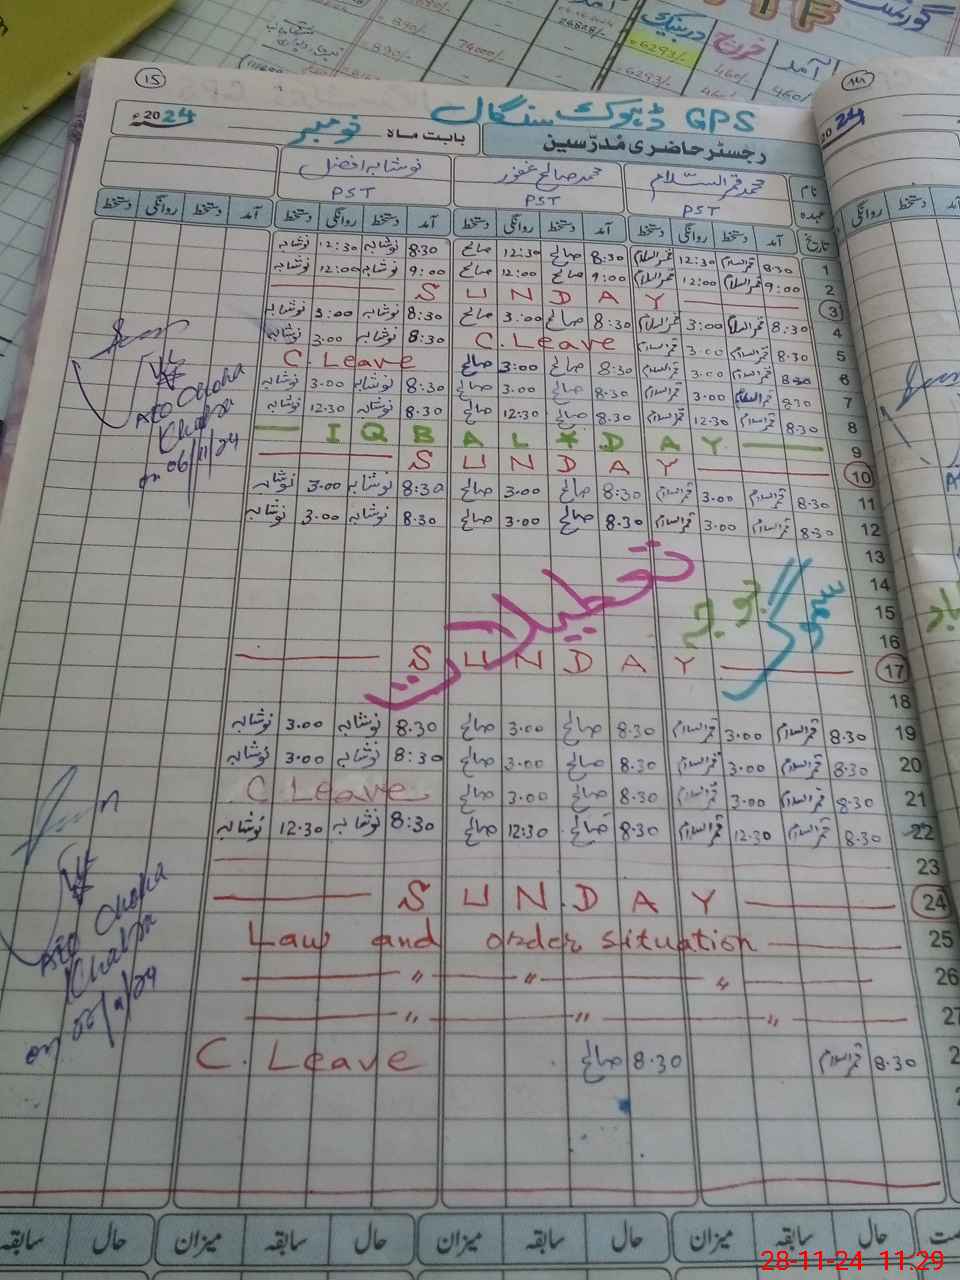 15
GPS ڈہوک سنگال
2024ء
بابت ماہ نومبر
رجسٹر حاضری مُدرّسین
نام محمد قمر السلام محمد صالح غفور نوشابہ افضل
عہدہ PST PST PST
تاریخ آمد دستخط روانگی دستخط آمد دستخط روانگی دستخط آمد دستخط روانگی دستخط آمد دستخط روانگی دستخط
1 8.30 قمرالسلام 12:30 قمرالسلام 8:30 صالح 12:30 صالح 8:30 نوشابہ 12:30 نوشابہ
2 9:00 قمرالسلام 12:00 قمرالسلام 9:00 صالح 12:00 صالح 9:00 نوشابہ 12:00 نوشابہ
3 SUNDAY
4 8:30 قمرالسلام 3:00 قمرالسلام 8:30 صالح 3:00 صالح 8:30 نوشابہ 3:00 نوشابہ
5 8.30 قمرالسلام 3.00 قمرالسلام C.Leave 8:30 نوشابہ 3.00 نوشابہ
6 8.30 قمرالسلام 3.00 قمرالسلام 8:30 صالح 3:00 صالح C.Leave
7 8.30 قمرالسلام 3.00 قمرالسلام 8.30 صالح 3.00 صالح 8:30 نوشابہ 3.00 نوشابہ
8 8.30 قمرالسلام 12.30 قمرالسلام 8.30 صالح 12.30 صالح 8.30 نوشابہ 12.30 نوشابہ
9 IQBAL * DAY
10 SUNDAY
11 8.30 قمرالسلام 3.00 قمرالسلام 8:30 صالح 3.00 صالح 8:30 نوشابہ 3.00 نوشابہ
12 8.30 قمرالسلام 3.00 قمرالسلام 8.30 صالح 3.00 صالح 8.30 نوشابہ 3.00 نوشابہ
13
14
15
16
سموگ تعطیلات
17 SUNDAY
18
19 8.30 قمرالسلام 3.00 قمرالسلام 8.30 صالح 3.00 صالح 8.30 نوشابہ 3.00 نوشابہ
20 8.30 قمرالسلام 3.00 قمرالسلام 8.30 صالح 3.00 صالح 8:30 نوشابہ 3.00 نوشابہ
21 8.30 قمرالسلام 3.00 قمرالسلام 8.30 صالح 3.00 صالح C Leave
22 8.30 قمرالسلام 12.30 قمرالسلام 8.30 صالح 12:30 صالح 8:30 نوشابہ 12.30 نوشابہ
23
24 SUNDAY
25 Law and order situation
26 〃 〃 〃
27 〃 〃 〃
8.30 قمرالسلام 8.30 صالح C. Leave
AEO Choha
Khalsa
on 06/11/24
AEO Choha
Khalsa
حال سابقہ میزان حال سابقہ میزان حال سابقہ میزان حال سابقہ
2024
آمد دستخط روانگی
آمد خرچ
460/- 460/- 6293/-
74000/-
28-11-24 11:29